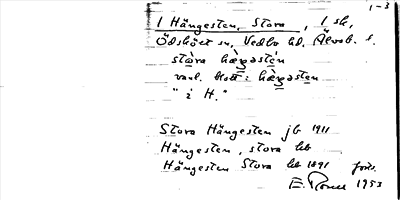 1-3
1 Hängesten, Stora, 1 sk,
Ödskölt sn, Vedbo hd, Älvsb. l.
stòra hæŋəsten
vanl. blott: hæŋəsten
"i H."
Stora Hängesten jb 1911
Hängesten, stora lcb
Hängesten Stora lcb 1891 forts.
E. 1953